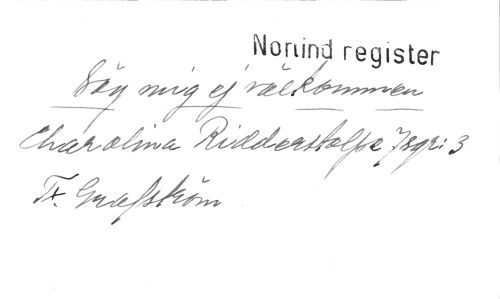 Nonind register
Säg mig ej välkommen
Charolina Ridderstolpe, 7sgr: 3
Fr. Grafström